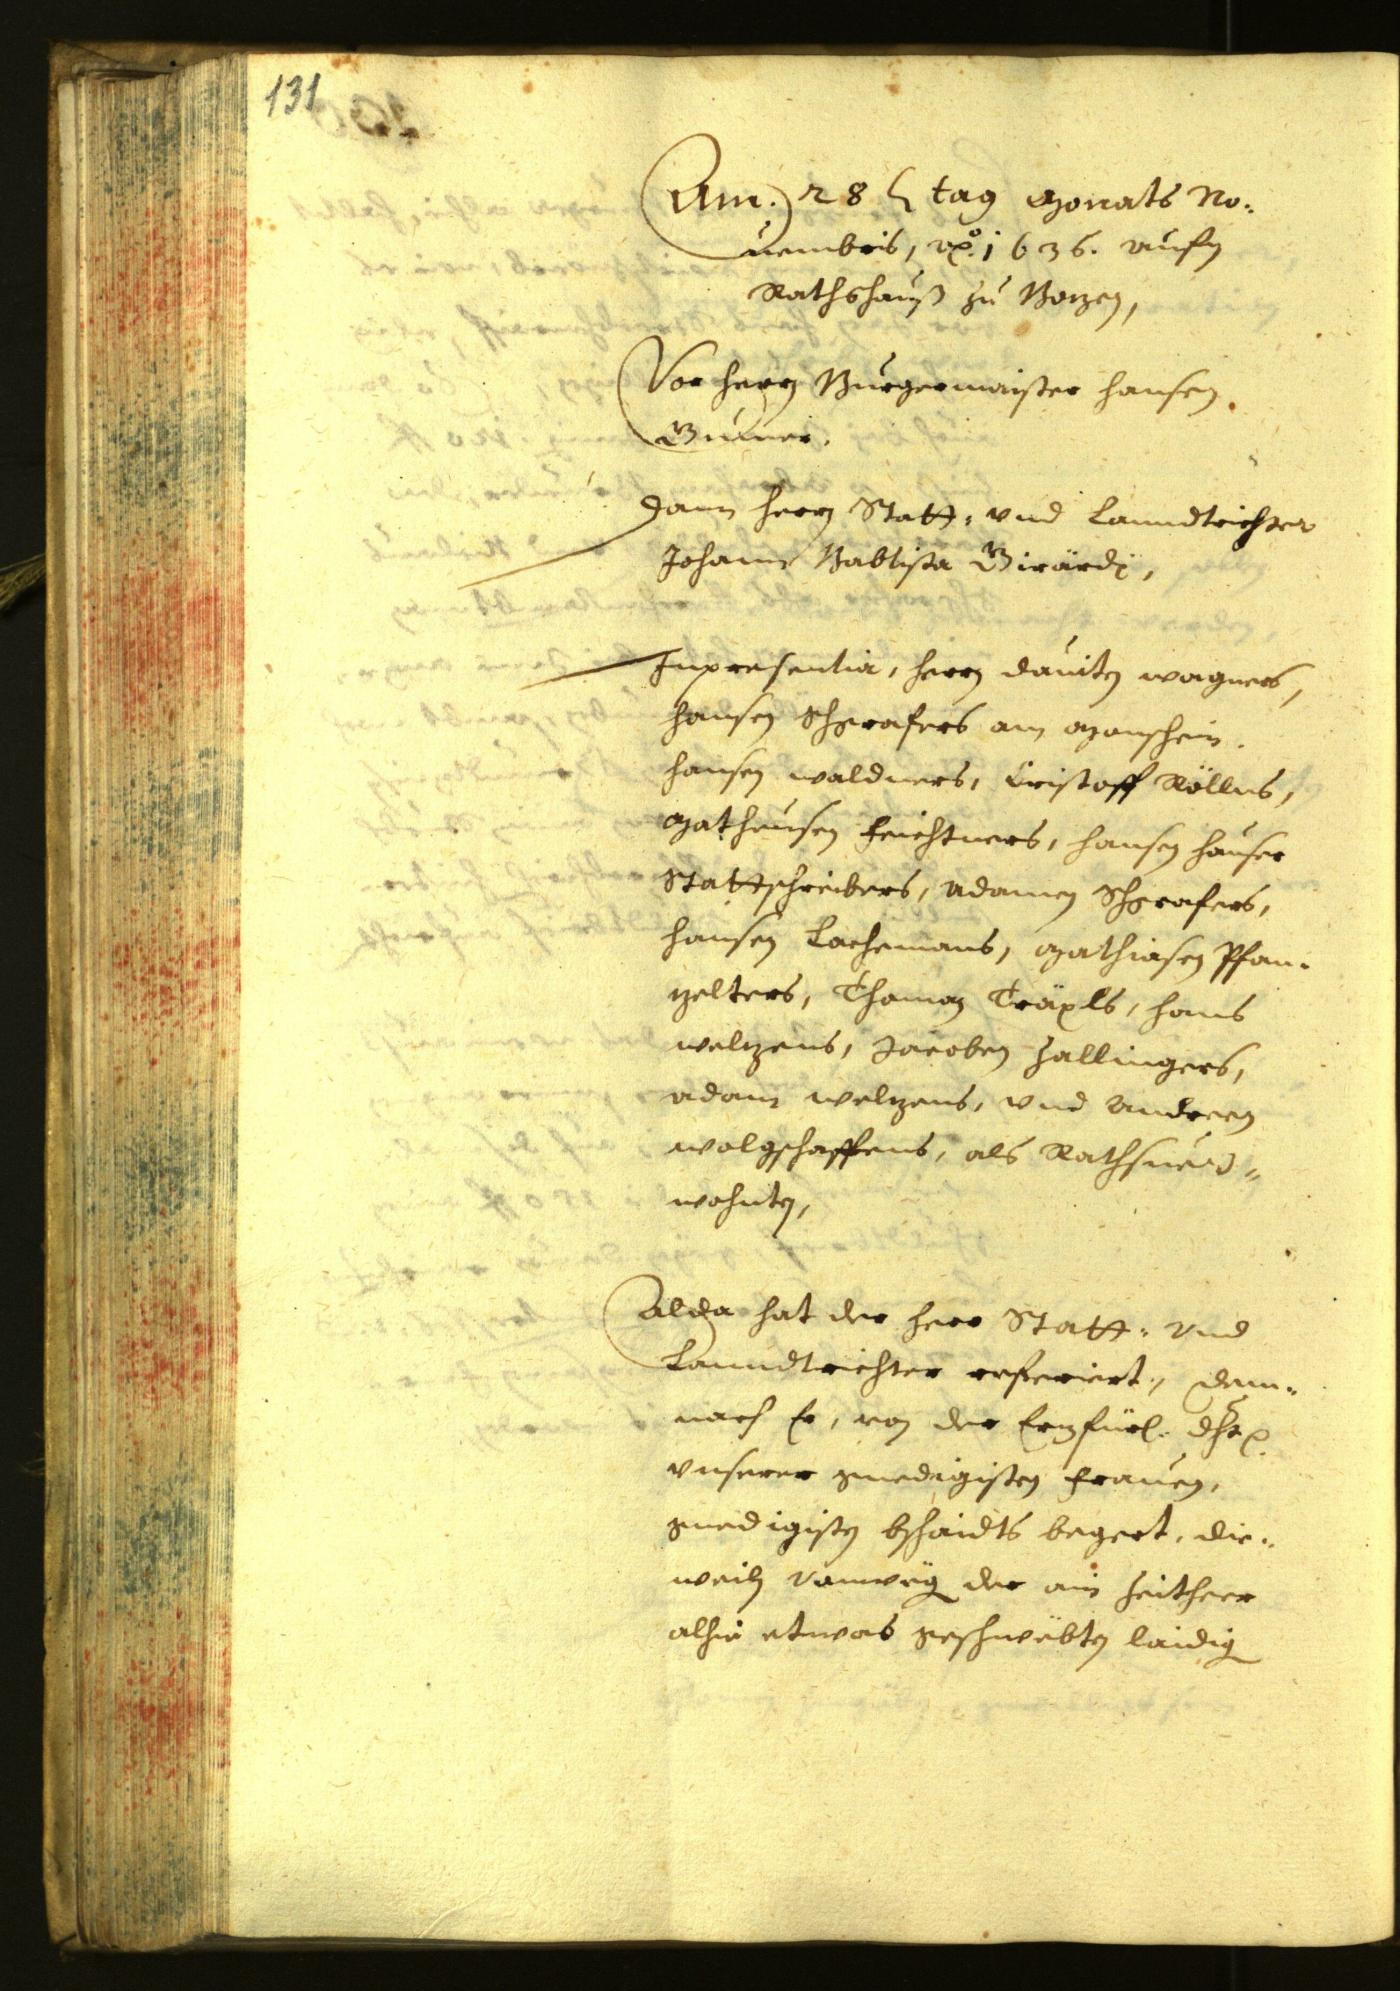 131
Am. 28 h tag Monats No:
uembris, a̅o. 1636. aufm
Rathshauß zu Bozen,
Vor herrn Burgermaister hansen
Gumer.
Dann herrn Statt: vnd Lanndtrichter
Johann Babtista Girärdj,
In presentia, herrn dauiten wagners,
hansen Schgrafers am Monschein.
hansen waldners, Cristoff Röllns,
Matheusen feichtners, hansen hauser
Stattschreibers, Adamen Schgrafers,
hansen Lachemans, Mathiasen Pfan:
zelters, Thoman Träxls, hans
welzens, Jacoben Zallingers,
adam welzens, vnd Andreen
wolgschaffens, als Rathsuer:
wohnten,
Alda hat der herr Statt: vnd
Lanndtrichter referiert, dem:
nach Er, von der Erzfürl. Dht.
vnserer gnedigisten frauen,
gnedigisten bschaidts begert, die:
weiln vonweg der ain Zeitheer
alhie etwas geschwebten laidig